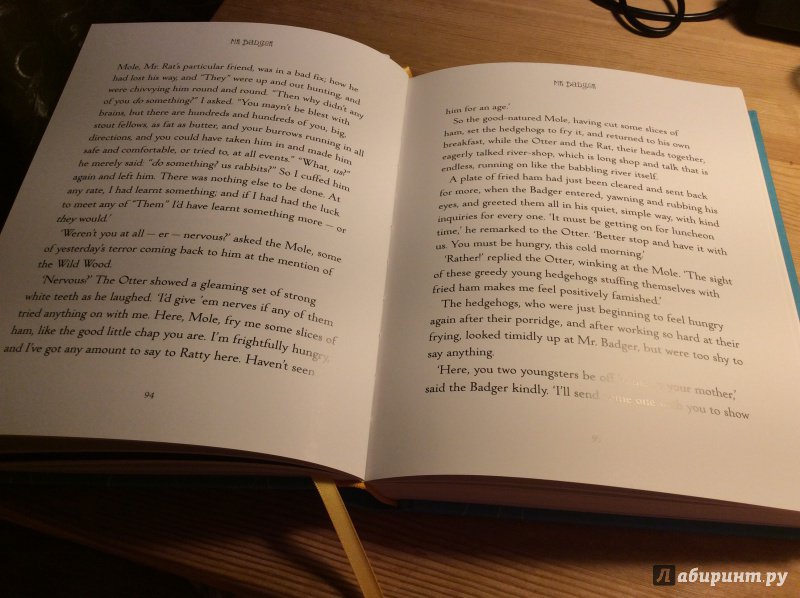 MR BADGER
Mole, Mr. Rat's particular friend, was in a bad fix; how
had lost his way, and "They" were up and out hunting, and
were chivvying him round and round. "Then why didn't any
of you do something?" I asked. "You mayn't be blest with
brains, but there are hundreds and hundreds of you, big,
stout fellows, as fat as butter, and your burrows running in all
directions, and you could have taken him in and made him
safe and comfortable, or tried to, at all events." "What, us?"
he merely said: "do something? us rabbits?" So I cuffed him
again and left him. There was nothing else to be done. At
any rate, I had learnt something; and if I had had the luck
to meet any of "Them" I'd have learnt something more – or
they would.'
'Weren't you at all – er – nervous?' asked the Mole, some
of yesterday's terror coming back to him at the mention of
the Wild Wood.
'Nervous?' The Otter showed a gleaming set of strong
white teeth as he laughed. 'I'd give 'em nerves if any of them
tried anything on with me. Here, Mole, fry me some slices of
ham, like the good little chap you are. I'm frightfully hungry,
and I've got any amount to say to Ratty here. Haven't seen
94
MR BADGER
him for an age.'
So the good-natured Mole, having cut some slices of
ham, set the hedgehogs to fry it, and returned to his own
breakfast, while the Otter and the Rat, their heads together,
eagerly talked river-shop, which is long shop and talk that is
endless, running on like the babbling river itself.
A plate of fried ham had just been cleared and sent back
for more, when the Badger entered, yawning and rubbing his
eyes, and greeted them all in his quiet, simple way, with kind
inquiries for every one. 'It must be getting on for luncheon
time,' he remarked to the Otter. 'Better stop and have it with
us. You must be hungry, this cold morning.'
'Rather!' replied the Otter, winking at the Mole. 'The sight
of these greedy young hedgehogs stuffing themselves with
fried ham makes me feel positively famished.'
The hedgehogs, who were just beginning to feel hungry
again after their porridge, and after working so hard at their
frying, looked timidly up at Mr. Badger, but were too shy to
say anything.
'Here, you two youngsters be off your mother,'
said the Badger kindly. 'I'll send some one with you to show
лабиринт.ру